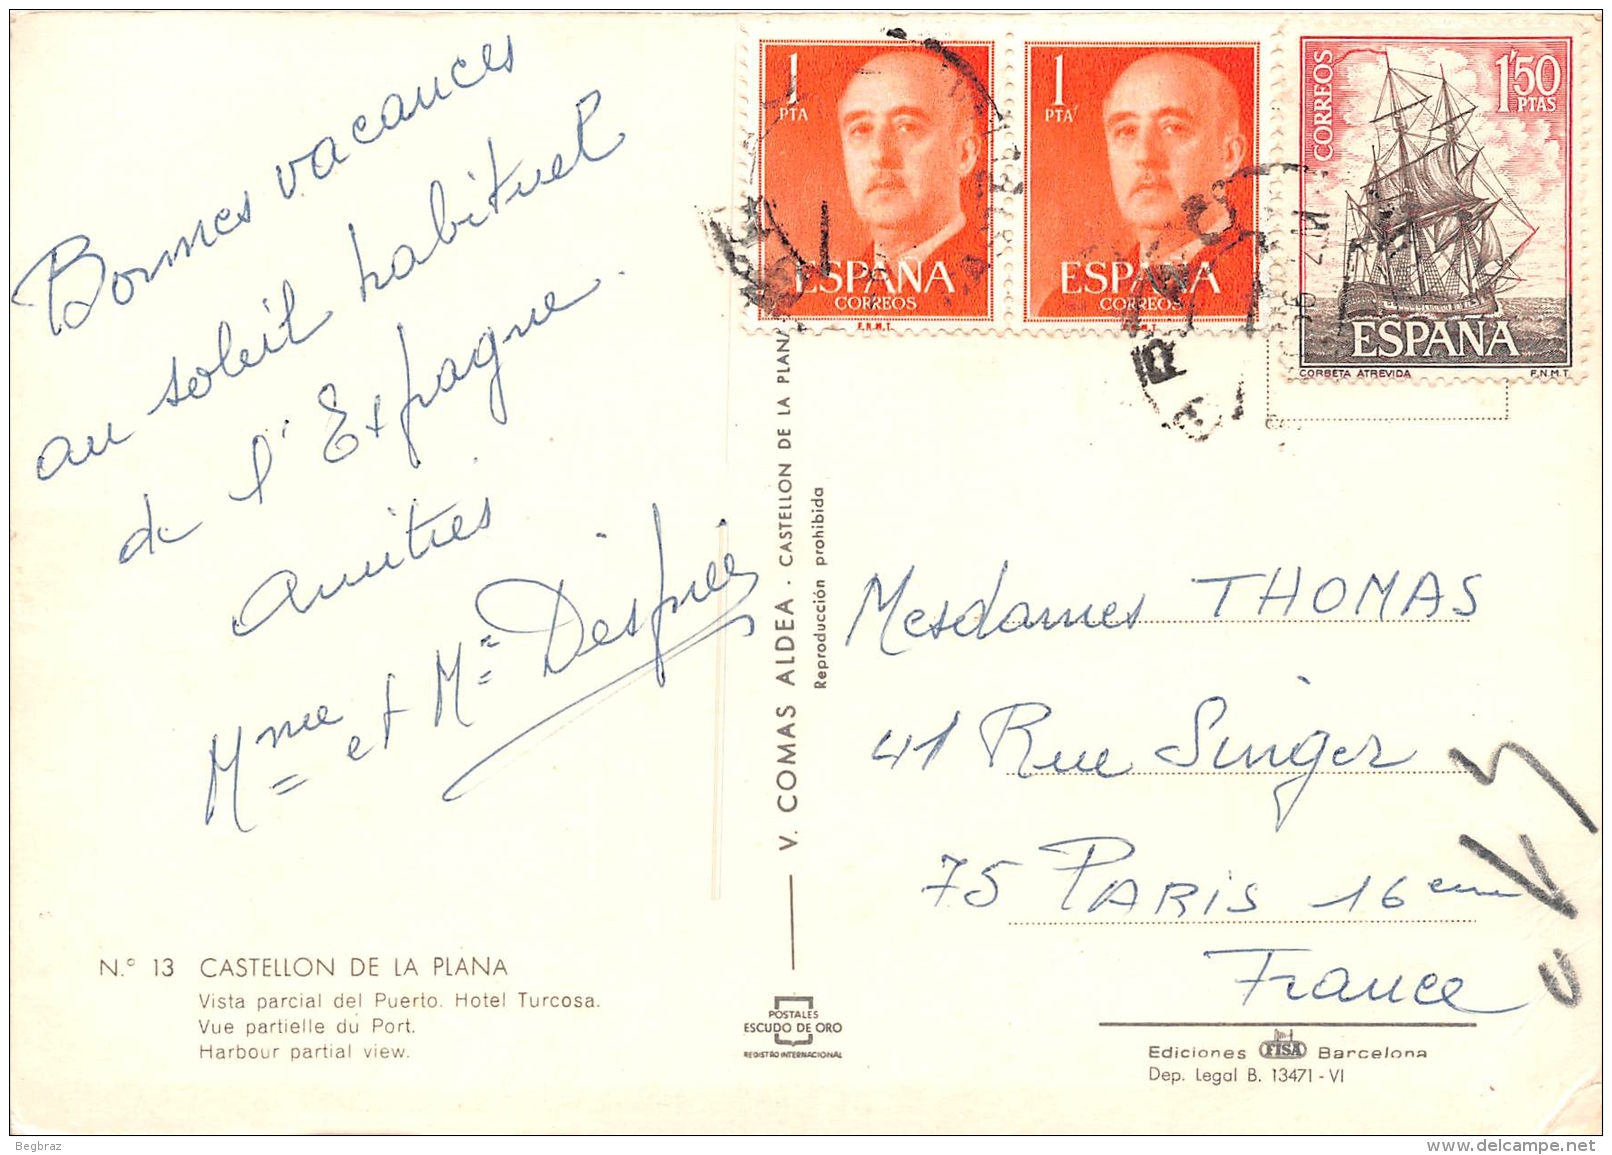 Bonnes vacances
au soleil habituel
de l'Espagne.
Amitiés
Mme et Mr Després
N.º 13 CASTELLON DE LA PLANA
Vista parcial del Puerto. Hotel Turcosa.
Vue partielle du Port.
Harbour partial view.
V. COMAS ALDEA · CASTELLON DE LA PLANA
Reproducción prohibida
POSTALES
ESCUDO DE ORO
REGISTRO INTERNACIONAL
1
PTA
ESPAÑA
CORREOS
F.N.M.T.
1
PTA
ESPAÑA
CORREOS
F.N.M.T.
CORREOS
1'50
PTAS
ESPAÑA
CORBETA ATREVIDA F.N.M.T.
Mesdames THOMAS
41 Rue Singer
75 PARIS 16eme
France
Ediciones FISA Barcelona
Dep. Legal B. 13471 - VI
Begbraz
delcampe.net